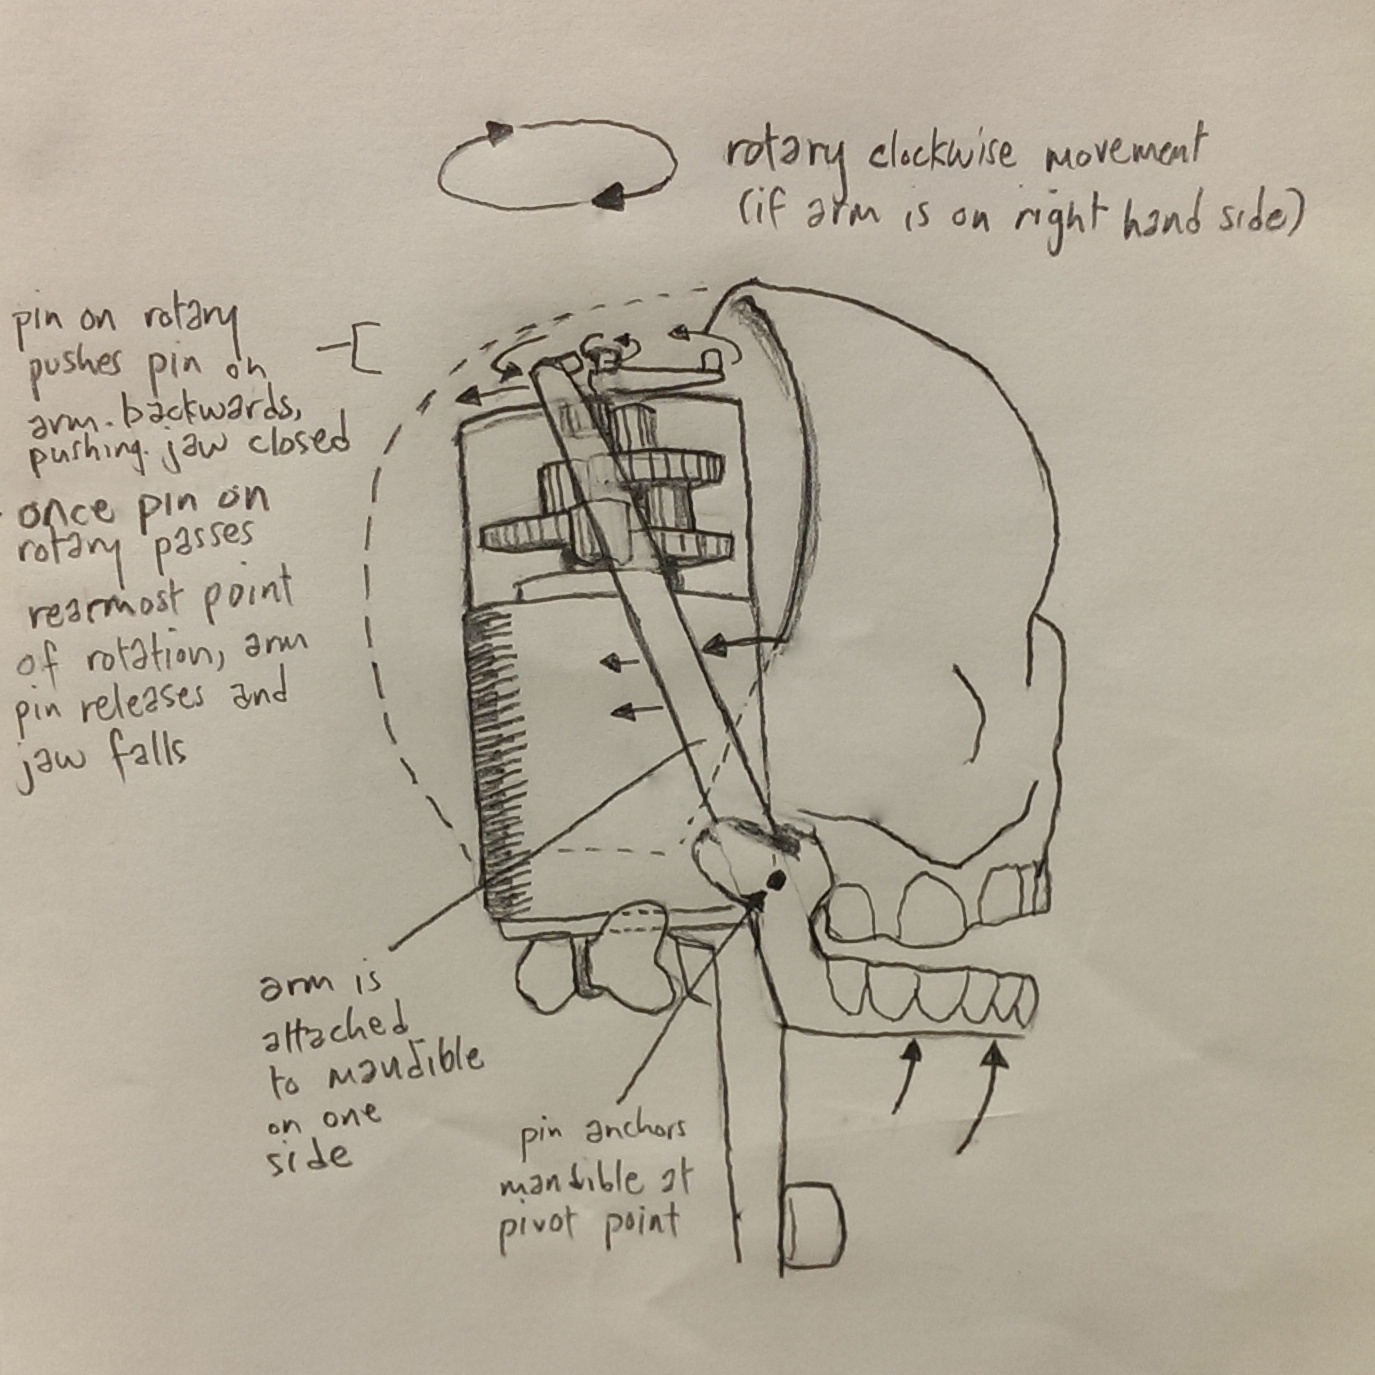 rotary clockwise movement
(if arm is on right hand side)
pin on rotary
pushes pin on
arm. backwards,
pushing. jaw closed
once pin on
rotary passes
rearmost point
of rotation, arm
pin releases and
jaw falls
arm is
attached
to mandible
on one
side
pin anchors
mandible at
pivot point